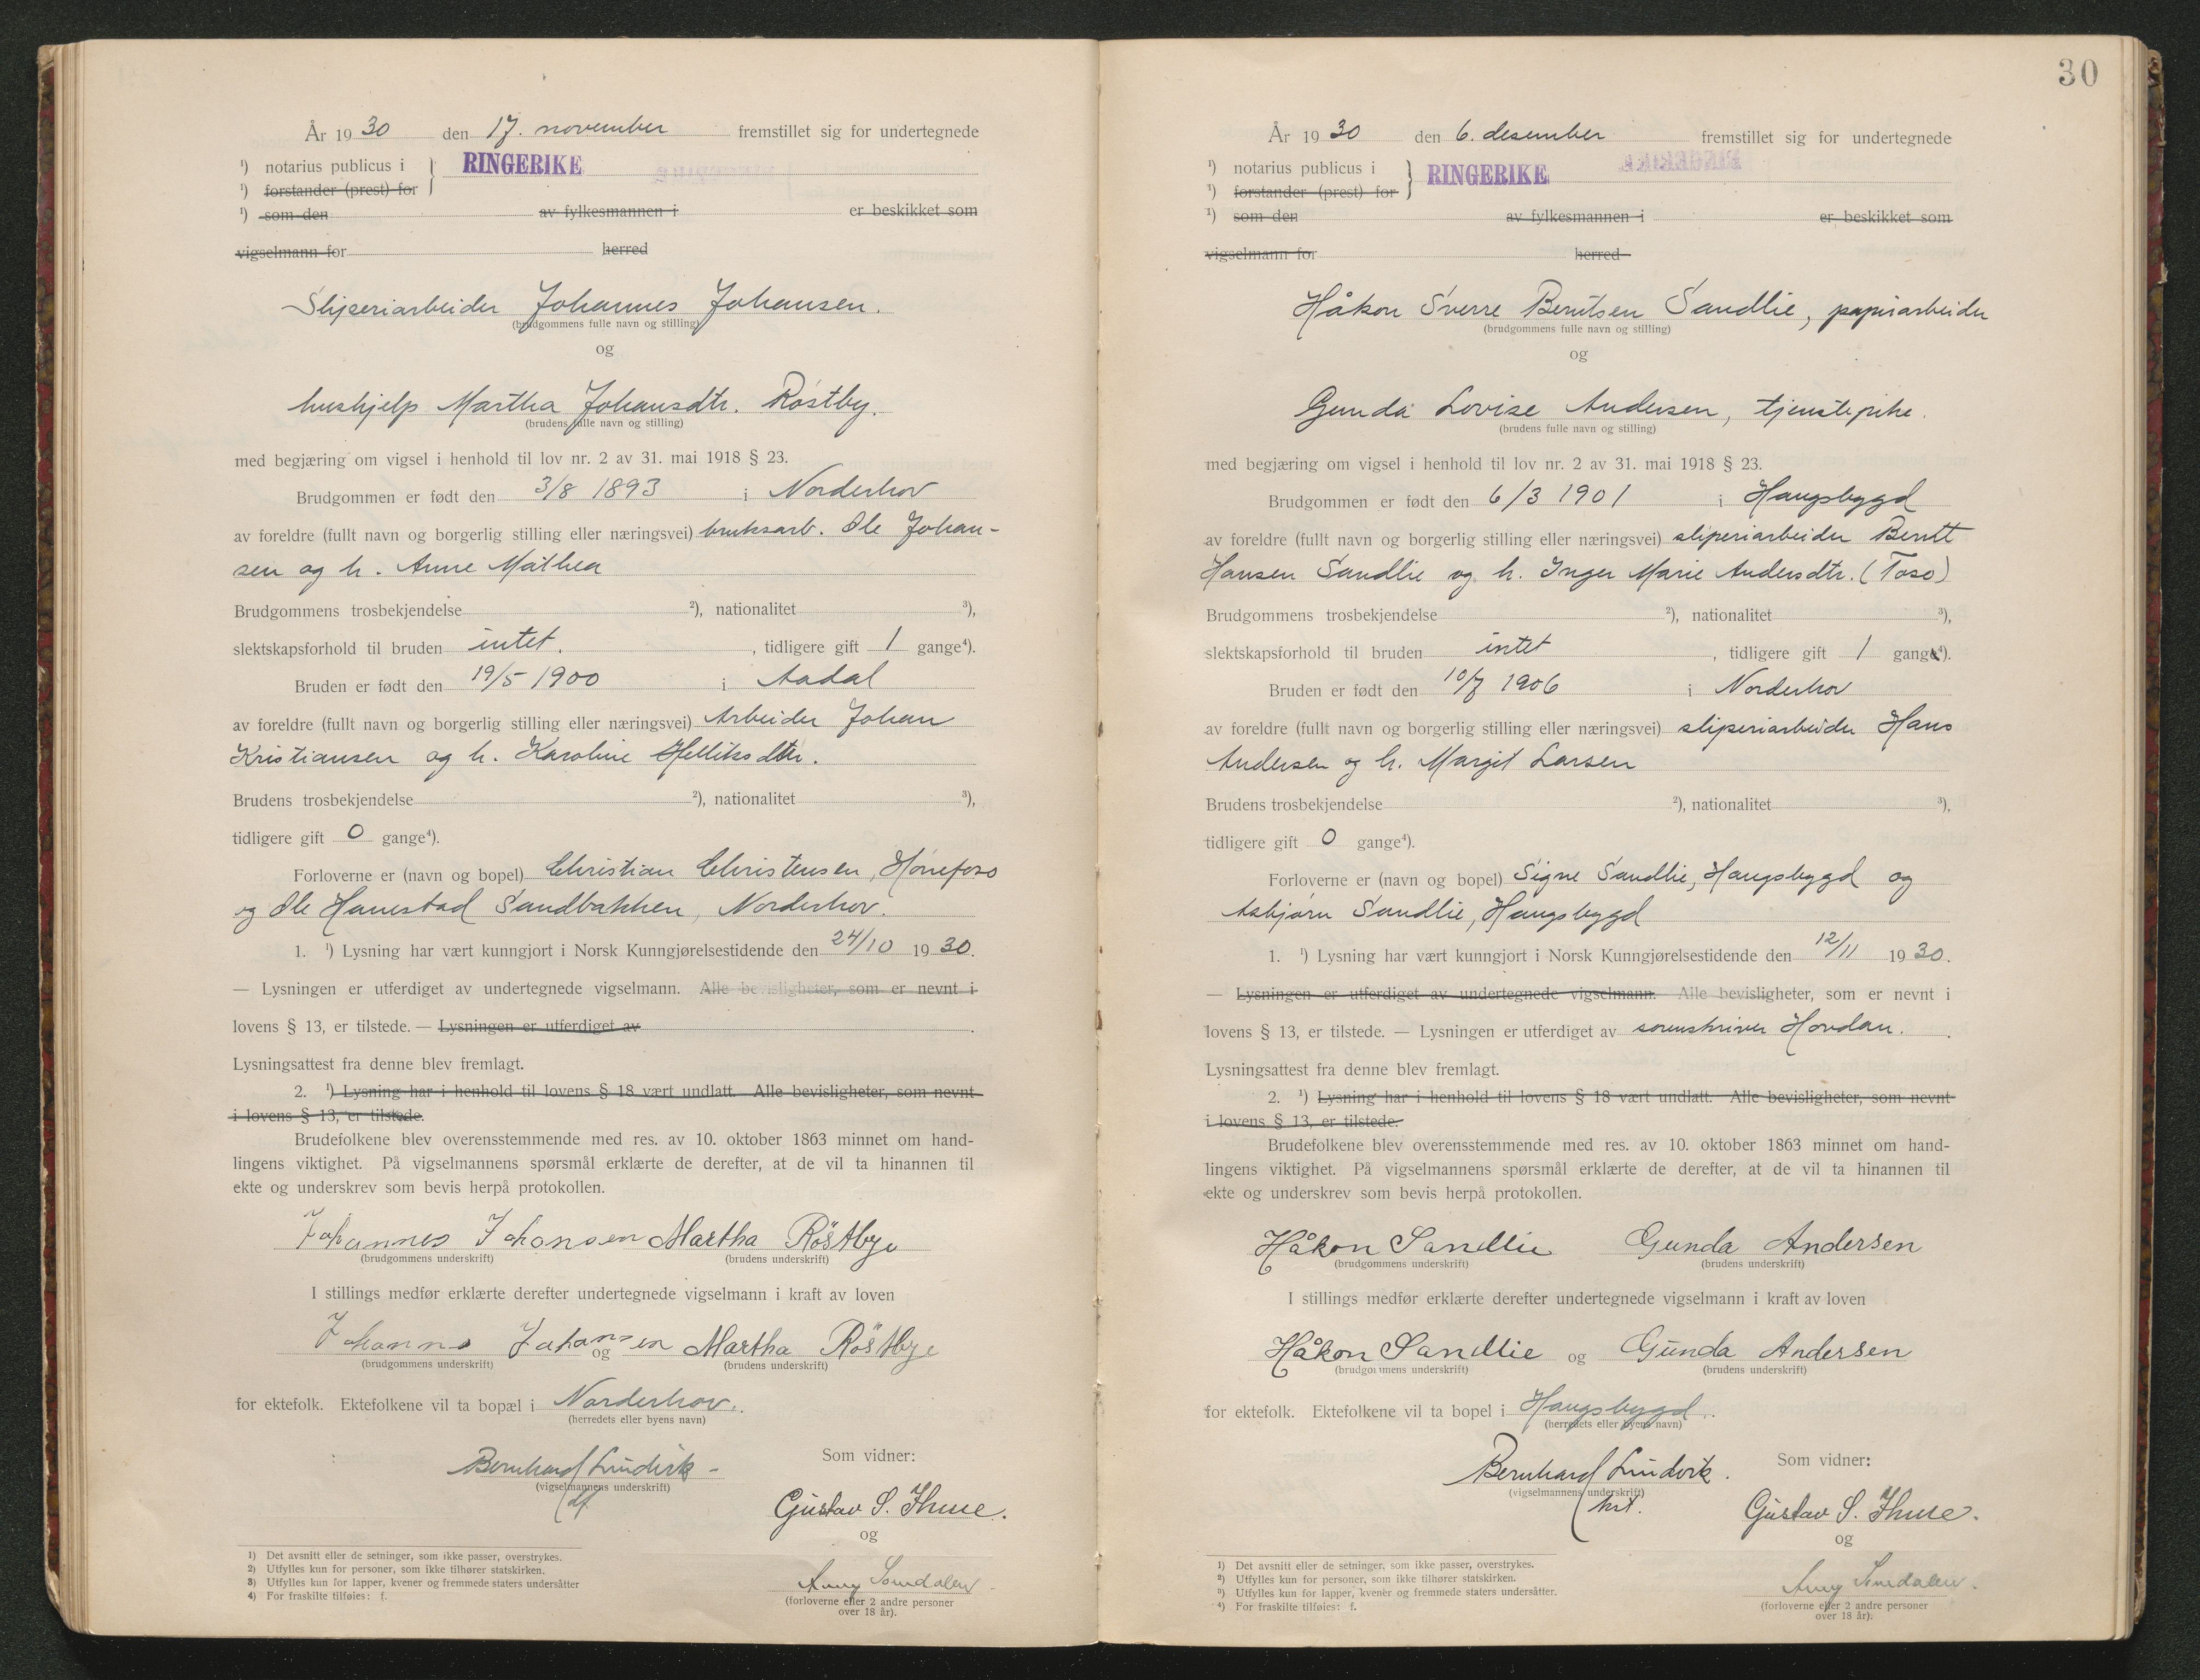 År 19 30 den 17. november fremstillet sig for undertegnede
¹) notarius publicus i } RINGERIKE
¹) forstander (prest) for
¹) som den av fylkesmannen i er beskikket som
vigselmann for herred
Sliperiarbeider Johannes Johansen.
(brudgommens fulle navn og stilling)
og
hushjelp Martha Johansdtr. Røstby.
(brudens fulle navn og stilling)
med begjæring om vigsel i henhold til lov nr. 2 av 31. mai 1918 § 23.
Brudgommen er født den 3/8 1893 i Norderhov
av foreldre (fullt navn og borgerlig stilling eller næringsvei) bruksarb. Ole Johan-
sen og h. Anne Mathea
Brudgommens trosbekjendelse ²), nationalitet ³),
slektskapsforhold til bruden intet. , tidligere gift 1 gange⁴).
Bruden er født den 19/5 1900 i Aadal
av foreldre (fullt navn og borgerlig stilling eller næringsvei) Arbeider Johan
Kristiansen og h. Karoline Helliksdtr.
Brudens trosbekjendelse ²), nationalitet ³),
tidligere gift 0 gange⁴).
Forloverne er (navn og bopel) Christian Christensen, Hønefoss
og Ole Hanestad Sandbakken, Norderhov.
1. ¹) Lysning har vært kunngjort i Norsk Kunngjørelsestidende den 24/10 19 30.
— Lysningen er utferdiget av undertegnede vigselmann. Alle bevisligheter, som er nevnt i
lovens § 13, er tilstede. — Lysningen er utferdiget av .
Lysningsattest fra denne blev fremlagt.
2. ¹) Lysning har i henhold til lovens § 18 vært undlatt. Alle bevisligheter, som nevnt
i lovens § 13, er tilstede.
Brudefolkene blev overensstemmende med res. av 10. oktober 1863 minnet om hand-
lingens viktighet. På vigselmannens spørsmål erklærte de derefter, at de vil ta hinannen til
ekte og underskrev som bevis herpå protokollen.
Johannes Johansen Martha Röstbye
(brudgommens underskrift) (brudens underskrift)
I stillings medfør erklærte derefter undertegnede vigselmann i kraft av loven
Johannes Johansen og Martha Röstbye
(brudgommens underskrift) (brudens underskrift)
for ektefolk. Ektefolkene vil ta bopæl i Norderhov.
(herredets eller byens navn)
Bernhard Lundvik
(vigselmannens underskrift)
Som vidner:
Gustav S. Thue.
og
Anny Somdalen
(forloverne eller 2 andre personer
over 18 år).
1) Det avsnitt eller de setninger, som ikke passer, overstrykes.
2) Utfylles kun for personer, som ikke tilhører statskirken.
3) Utfylles kun for lapper, kvener og fremmede staters undersåtter
4) For fraskilte tilføies: f.
30
År 19 30 den 6. desember fremstillet sig for undertegnede
¹) notarius publicus i } RINGERIKE
¹) forstander (prest) for
¹) som den av fylkesmannen i er beskikket som
vigselmann for herred
Håkon Sverre Berntsen Sandlie, papirarbeider
(brudgommens fulle navn og stilling)
og
Gunda Lovise Andersen, tjenstepike.
(brudens fulle navn og stilling)
med begjæring om vigsel i henhold til lov nr. 2 av 31. mai 1918 § 23.
Brudgommen er født den 6/3 1901 i Haugsbygd
av foreldre (fullt navn og borgerlig stilling eller næringsvei) sliperiarbeider Berntt
Hansen Sandlie og h. Inger Marie Andersdtr. (Toso)
Brudgommens trosbekjendelse ²), nationalitet ³),
slektskapsforhold til bruden intet , tidligere gift 1 gange⁴).
Bruden er født den 10/7 1906 i Norderhov
av foreldre (fullt navn og borgerlig stilling eller næringsvei) sliperiarbeider Hans
Andersen og h. Margit Larsen
Brudens trosbekjendelse ²), nationalitet ³),
tidligere gift 0 gange⁴).
Forloverne er (navn og bopel) Signe Sandlie, Haugsbygd og
Asbjørn Sandlie, Haugsbygd
1. ¹) Lysning har vært kunngjort i Norsk Kunngjørelsestidende den 12/11 19 30.
— Lysningen er utferdiget av undertegnede vigselmann. Alle bevisligheter, som er nevnt i
lovens § 13, er tilstede. — Lysningen er utferdiget av sorenskriver Hovdan.
Lysningsattest fra denne blev fremlagt.
2. ¹) Lysning har i henhold til lovens § 18 vært undlatt. Alle bevisligheter, som nevnt
i lovens § 13, er tilstede.
Brudefolkene blev overensstemmende med res. av 10. oktober 1863 minnet om hand-
lingens viktighet. På vigselmannens spørsmål erklærte de derefter, at de vil ta hinannen til
ekte og underskrev som bevis herpå protokollen.
Håkon Sandlie Gunda Andersen
(brudgommens underskrift) (brudens underskrift)
I stillings medfør erklærte derefter undertegnede vigselmann i kraft av loven
Håkon Sandlie og Gunda Andersen
(brudgommens underskrift) (brudens underskrift)
for ektefolk. Ektefolkene vil ta bopel i Haugsbygd.
(herredets eller byens navn)
Bernhard Lundvik.
(vigselmannens underskrift)
Som vidner:
Gustav S. Thue.
og
Anny Somdalen.
(forloverne eller 2 andre personer
over 18 år).
1) Det avsnitt eller de setninger, som ikke passer, overstrykes.
2) Utfylles kun for personer, som ikke tilhører statskirken.
3) Utfylles kun for lapper, kvener og fremmede staters undersåtter.
4) For fraskilte tilføies: f.